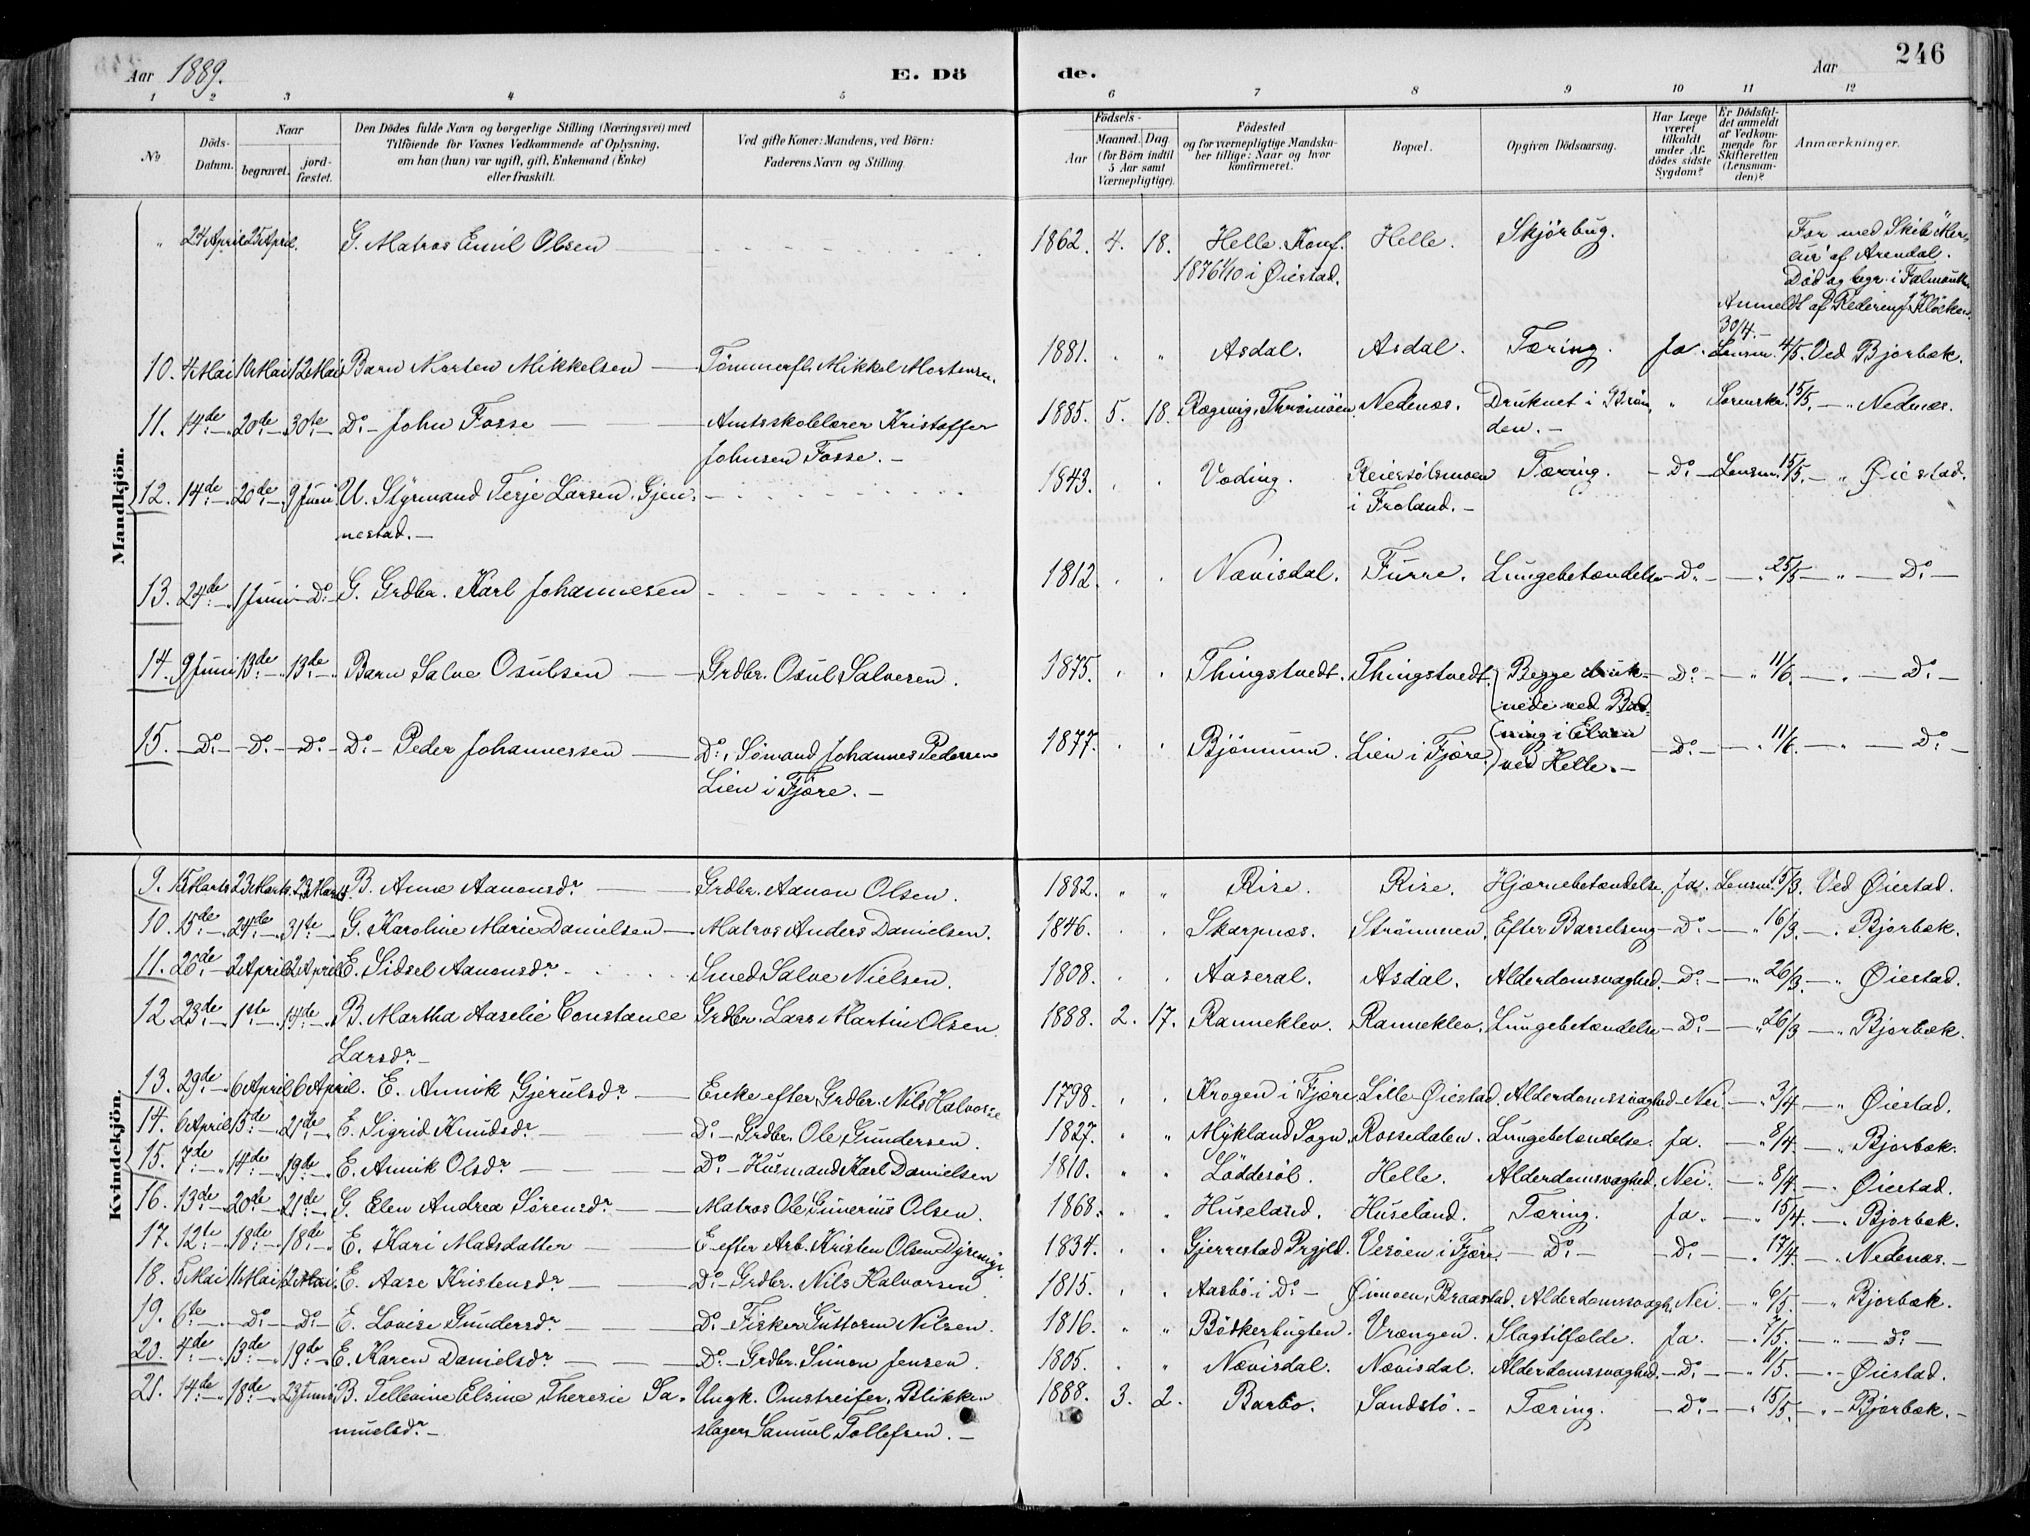 Aar 1889. E. Dö de. Aar 246
1 2 3 4 5 6 7 8 9 10 11 12
No Döds-Datum. Naar begravet. jord-fæstet. Den Dödes fulde Navn og borgerlige Stilling (Næringsvei) med Tilföiende for Voxnes Vedkommende af Oplysning, om han (hun) var ugift, gift, Enkemand (Enke) eller fraskilt. Ved gifte Koner: Mandens, ved Börn: Faderens Navn og Stilling. Födsels- Aar Maaned. Dag (for Börn indtil 5 Aar samt Værnepligtige). Födested og for værnepligtige Mandskaber tillige: Naar og hvor konfirmeret. Bopæl. Opgiven Dödsaarsag. Har Læge været tilkaldt under Afdödes sidste Sygdom? Er Dödsfaldet anmeldt af Vedkommende for Skifteretten (Lensmanden)? Anmærkninger.
Mandkjön.
" 24 April 25 April. G. Matros Emil Olsen 1862. 4. 18. Helle. Konf. Helle. Skjørbug. For med Skib "Mer-
1876 1/10 i Øiestad. cur" af Arendal.
Død og begr. i Falmouth.
Anmeldt af Rederen
30/4.
10. 4 Mai 10 Mai 12 Mai Barn Morten Mikkelsen Tømmerfl. Mikkel Mortensen. 1881. " " Asdal. Asdal. Tæring. Ja. Lensm. 4/5. Ved Bjorbæk.
11. 14de 20de 30te Do - John Fosse Amtsskolelærer Kristoffer 1885. 5. 18. Rægevig, Thromøen. Nedenæs. Druknet i Brøn- " Sorenskr. 15/5. — " Nednæs.
Johnsen Fosse. — den. —
12. 14de 20de 9 Juni U. Styrmand Terje Larsen. Gjen- 1843. " " Voding. Reiersølsmoen Tæring. — Do — Lensm. 15/5. — " Øiestad.
nestad. — i Froland. —
13. 24de 1 Juni Do G. Grdbr. Karl Johannesen 1812. " " Nævisdal. Furre. Lungebetændelse — Do — " 25/5 — " — Do —
14. 9 Juni 13de 13de Barn Salve Osulsen Grdbr. Osul Salvesen. 1875. " " Thingstvedt. Thingstvedt. Begge druk- — Do — " 11/6. — " — Do —
nede ved Bad-
15. — Do — Do — Do — Do — Peder Johannessen Do, Sømand Johannes Pedersen 1877. " " Bjønnum. Lien i Fjære. ning i Elven — Do — " 11/6. — " — Do —
Lien i Fjære. — ved Helle. —
Kvindekjön.
9. 15 Marts 23 Marts 23 Marts B. Anne Aanonsdr Grdbr. Aanon Olsen. 1882. " " Rise. Rise. Hjærnebetændelse. Ja. Lensm. 15/3. Ved Øiestad.
10. 15de 24de 31te G. Karoline Marie Danielsen Matros Anders Danielsen. 1846. " " Skarpnæs. Strømmen. Efter Barselseng — Do — " 16/3. — " Bjorbæk.
11. 26de 2 April 2 April E. Sidsel Aanonsdr Smed Salve Nielsen. 1808. " " Aaseral. Asdal. Alderdomsvaghed. — Do — " 26/3. — " Øiestad.
12. 23de 1ste 14de B. Martha Aaselie Constance Grdbr. Lars Martin Olsen. 1888. 2. 17. Ranneklev. Ranneklev. Lungebetændelse — Do — " 26/3 — " Bjorbæk.
Larsdr —
13. 29de 6 April 6 April. E. Annik Gjerulsdr Enke efter Grdbr. Nils Halvorse 1798. " " Krogen i Fjære Lille Øiestad. Alderdomssvaghed — Nei. — " 3/4 — " Øiestad.
14. 6 April 15de 21de E. Sigrid Knudsdr Do — Grdbr. Ole Gundersen. 1827. " " Mykland Sogn. Rossedalen. Lungebetændelse. Ja. — " 8/4. — " Bjorbæk.
15. 7de 14de 19de E. Annik Olsdr Do — Husmand Karl Danielsen 1810. " " Løddesøl. Helle. Alderdomsvaghed. Nei. — " 8/4. — " Øiestad.
16. 13de 20de 21de G. Elen Andrea Sørensdr Matros Ole Gunerius Olsen. 1868. " " Huseland. Huseland. Tæring. Ja. — " 15/4. — " Bjorbæk.
17. 12te 18de 18de E. Kari Madsdatter E. efter Arb. Kristen Olsen 1834. " " Gjerrestad Prgjld. Vesøen i Fjære — Do — — Do — " 17/4. — " Nedenæs. —
18. 5 Mai 11 Mai 12 Mai E. Aase Kristensdr Do — Grdbr. Nils Halvorsen. 1815. " " Aasbø i Do — Øimoen, Braastad. Alderdomssvagh. Nei. — " 6/5. — " Bjorbæk.
19. 6te — Do — Do — E. Lovise Gundersdr Do — Fisker Guttorm Nilsen. 1816. " " Bödkerbugten. Vrængen. Slagtilfælde. Ja. — " 7/5. — " — Do —
20. 4de 13de 19de E. Karen Danielsdr Do — Grdbr. Simon Jensen. 1805. " " Nævisdal. Nævisdal. Alderdomssvaghed. — Do — " 11/5. — " Øiestad.
21. 14de 18de 23 Juni B. Tellevine Elsine Theresie Sa- Ungk. Omstreifer, Blikken- 1888. 3. 2. Barbo. Sandstø. — Tæring. — Do — " 15/5. — " Bjorbæk. —
muelsdr — slager Samuel Tollefsen. —